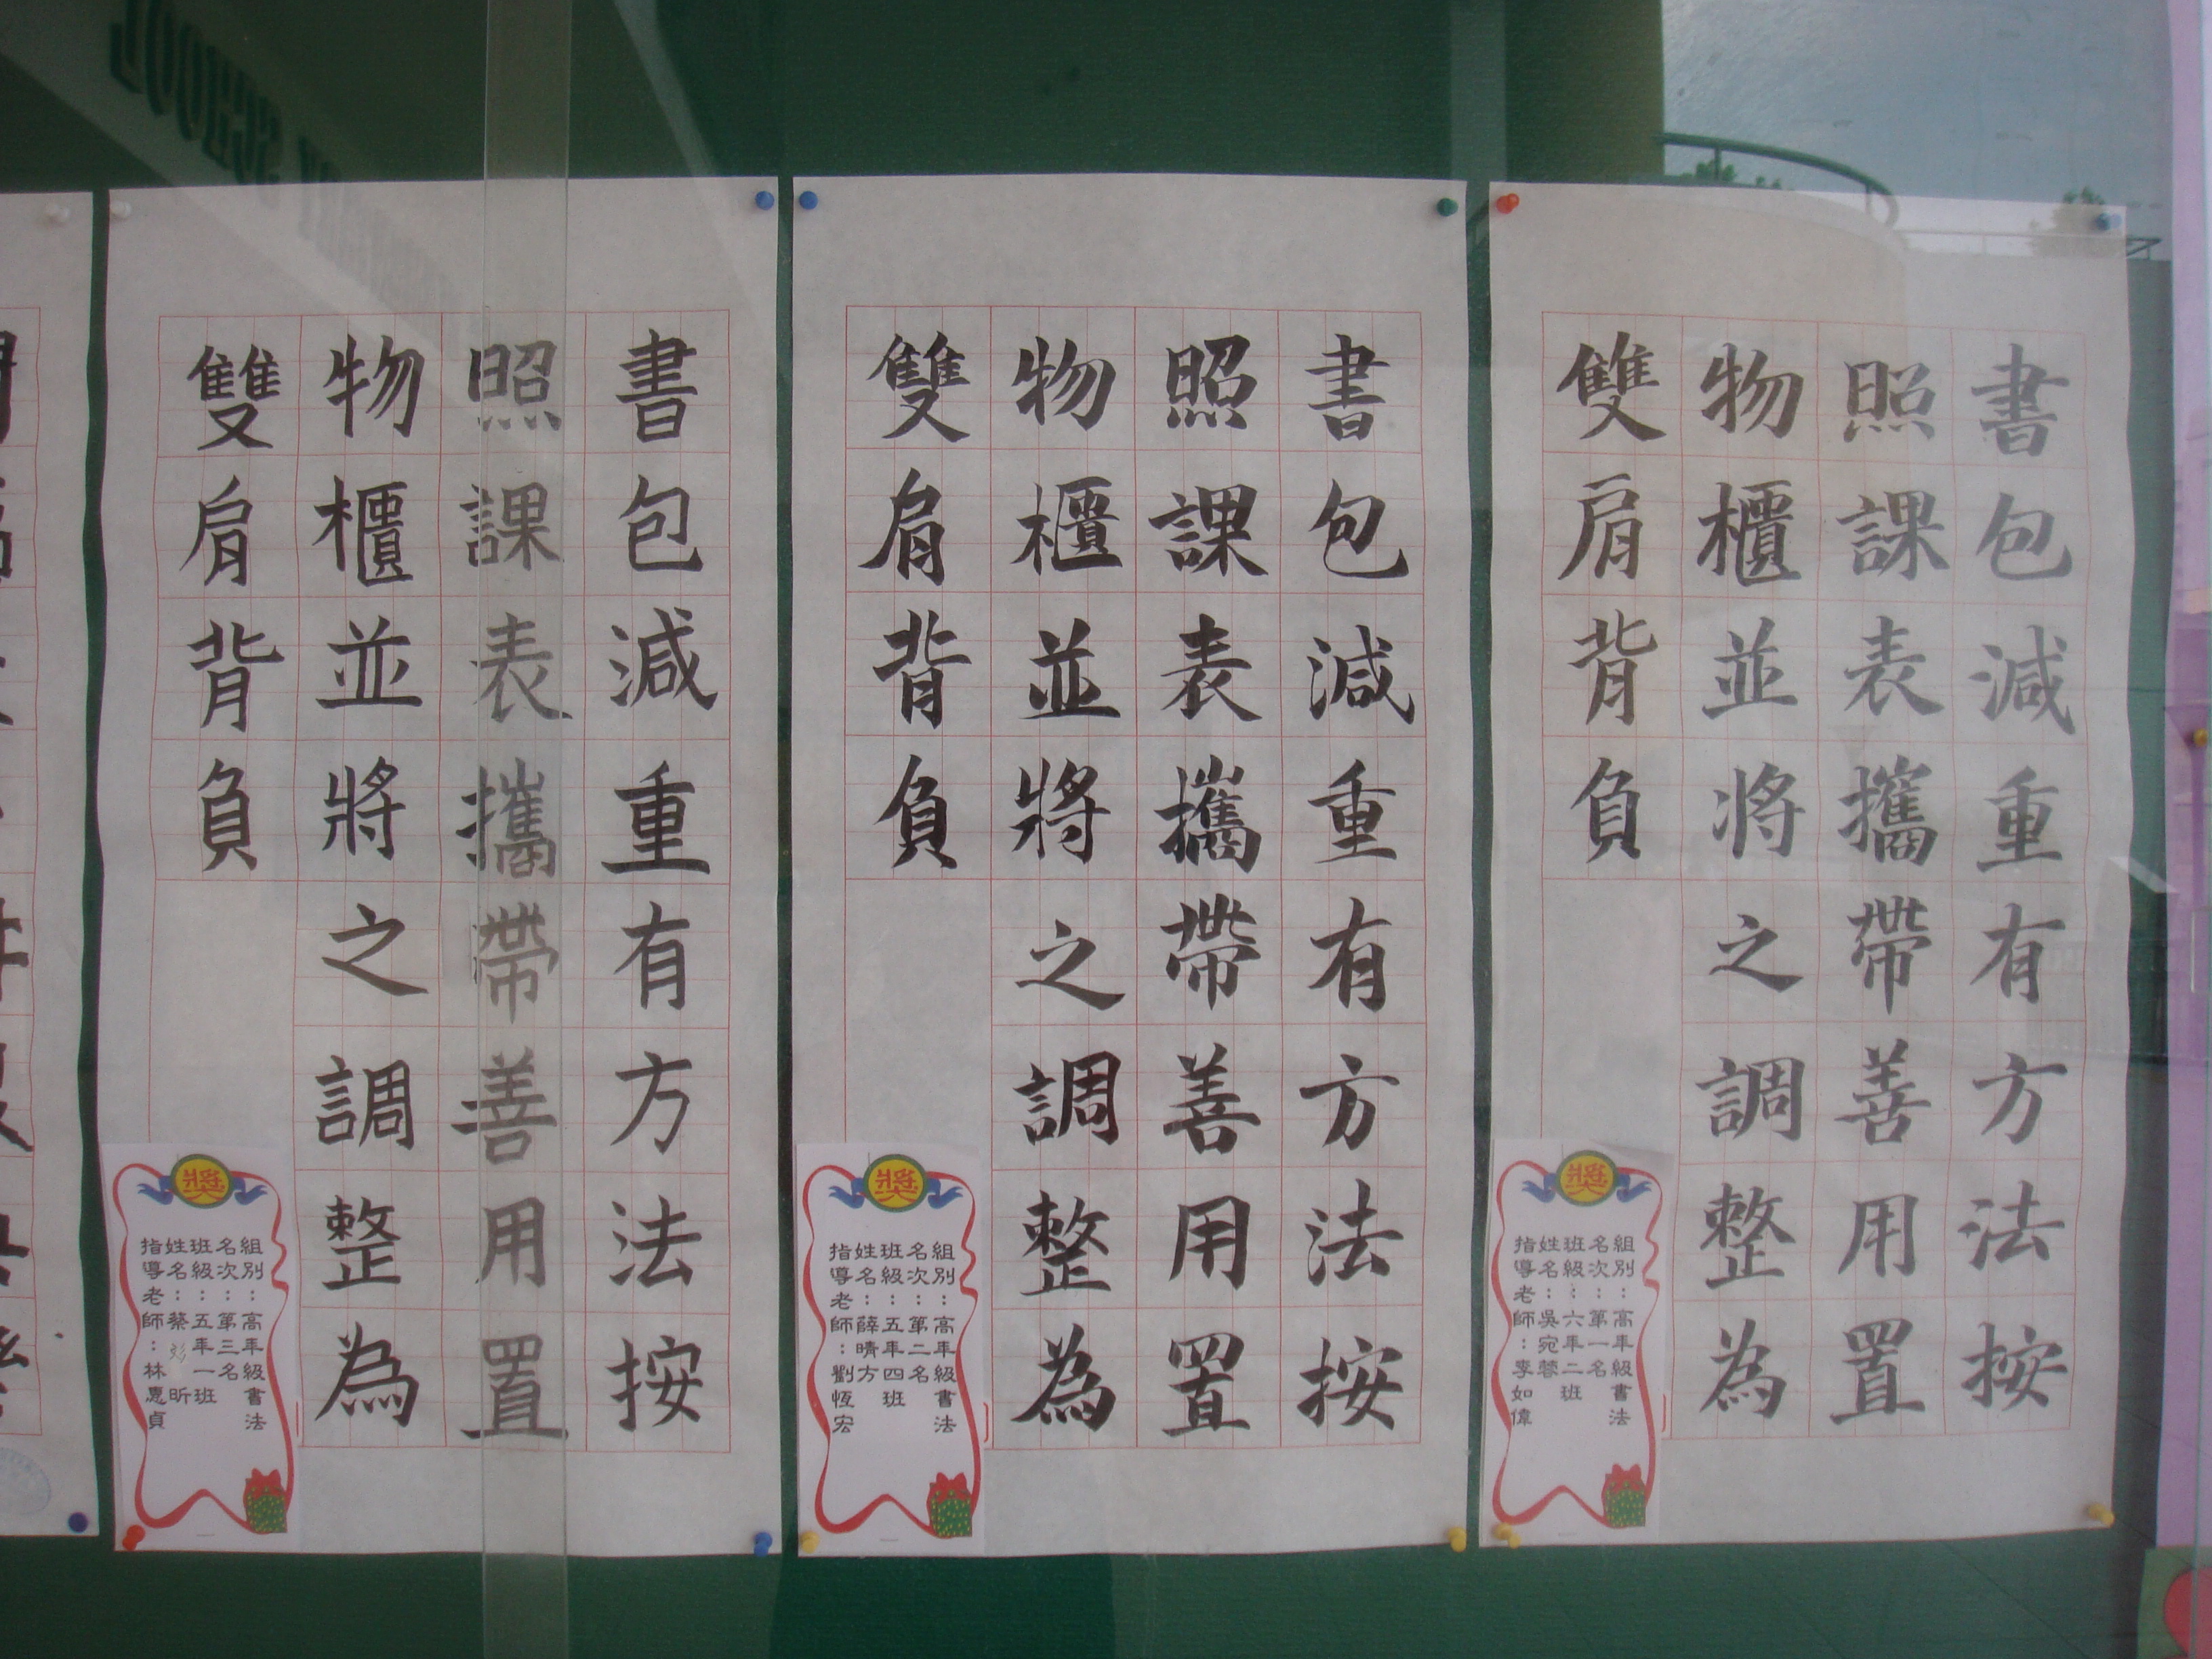 書包減重有方法按
照課表攜帶善用置
物櫃並將之調整為
雙肩背負
獎
組別：高年級書法
名次：第一名
班級：六年二班
姓名：吳宛蓉
指導老師：李如偉
書包減重有方法按
照課表攜帶善用置
物櫃並將之調整為
雙肩背負
獎
組別：高年級書法
名次：第二名
班級：五年四班
姓名：薛晴方
指導老師：劉恆宏
書包減重有方法按
照課表攜帶善用置
物櫃並將之調整為
雙肩背負
獎
組別：高年級書法
名次：第三名
班級：五年一班
姓名：蔡 昕
指導老師：林惠貞
SCHOOL